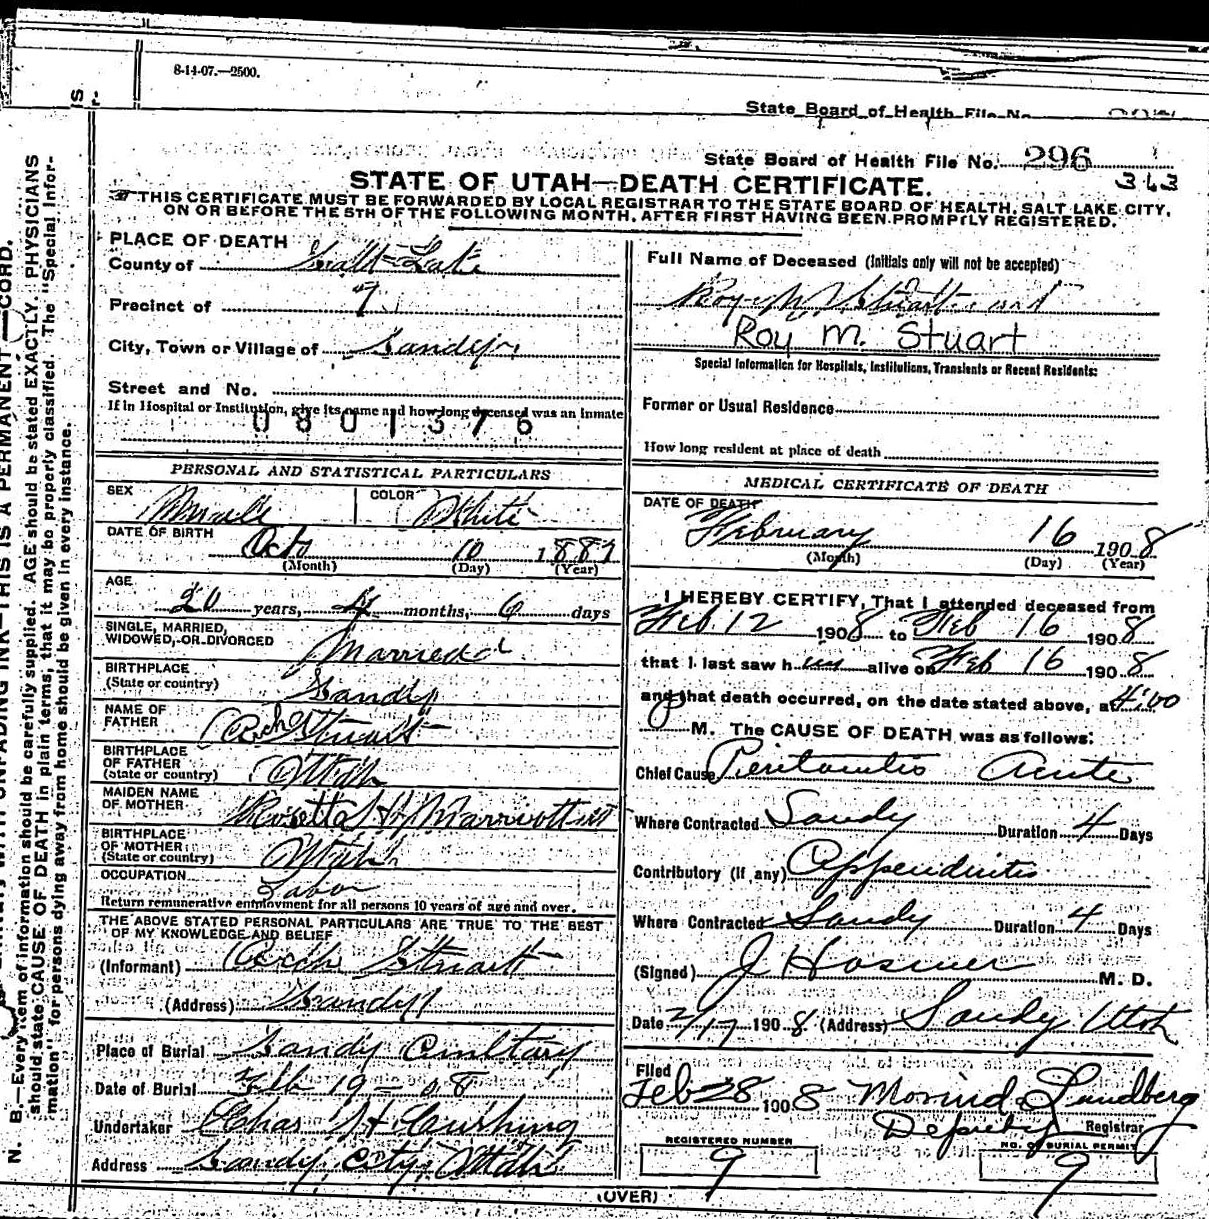 8-14-07.—2500.
State Board of Health File No.
State Board of Health File No. 296
363
STATE OF UTAH—DEATH CERTIFICATE.
THIS CERTIFICATE MUST BE FORWARDED BY LOCAL REGISTRAR TO THE STATE BOARD OF HEALTH, SALT LAKE CITY,
ON OR BEFORE THE 5TH OF THE FOLLOWING MONTH, AFTER FIRST HAVING BEEN PROMPTLY REGISTERED.
PLACE OF DEATH
County of Salt Lake
Precinct of 9
City, Town or Village of Sandy
Street and No.
If in Hospital or Institution, give its name and how long deceased was an inmate
0801376
Full Name of Deceased (Initials only will not be accepted)
Roy M Stuart
Roy M. Stuart
Special Information for Hospitals, Institutions, Transients or Recent Residents:
Former or Usual Residence
How long resident at place of death
PERSONAL AND STATISTICAL PARTICULARS
SEX Male COLOR White
DATE OF BIRTH Oct 10 1887
(Month) (Day) (Year)
AGE
20 years, 4 months, 6 days
SINGLE, MARRIED, WIDOWED, OR DIVORCED Married
BIRTHPLACE (State or country) Sandy
NAME OF FATHER Stuart
BIRTHPLACE OF FATHER (State or country) Utah
MAIDEN NAME OF MOTHER Rosetta H Marriott
BIRTHPLACE OF MOTHER (State or country) Utah
OCCUPATION Labor
Return remunerative employment for all persons 10 years of age and over.
THE ABOVE STATED PERSONAL PARTICULARS ARE TRUE TO THE BEST
OF MY KNOWLEDGE AND BELIEF
(Informant) Stuart
(Address) Sandy
Place of Burial Sandy Cemltary
Date of Burial Feb 19 - 08
Undertaker Chas H Cushing
Address Sandy City, Utah
MEDICAL CERTIFICATE OF DEATH
DATE OF DEATH
February 16 1908
(Month) (Day) (Year)
I HEREBY CERTIFY, That I attended deceased from
Feb. 12 1908 to Feb 16 1908
that I last saw him alive on Feb 16 1908
and that death occurred, on the date stated above, at 4:00
M. The CAUSE OF DEATH was as follows:
Chief Cause Peritonitis Acute
Where Contracted Sandy Duration 4 Days
Contributory (if any) Appendicitis
Where Contracted Sandy Duration 4 Days
(Signed) J Hosmer M. D.
Date 2/17 1908 (Address) Sandy Utah
Filed
Feb 28 1908 Lundberg
Deputy Registrar
REGISTERED NUMBER
9
NO. OF BURIAL PERMIT
9
(OVER)
N. B.—Every item of information should be carefully supplied. AGE should be stated EXACTLY. PHYSICIANS
should state CAUSE OF DEATH in plain terms, that it may be properly classified. The "Special Infor-
mation" for persons dying away from home should be given in every instance.